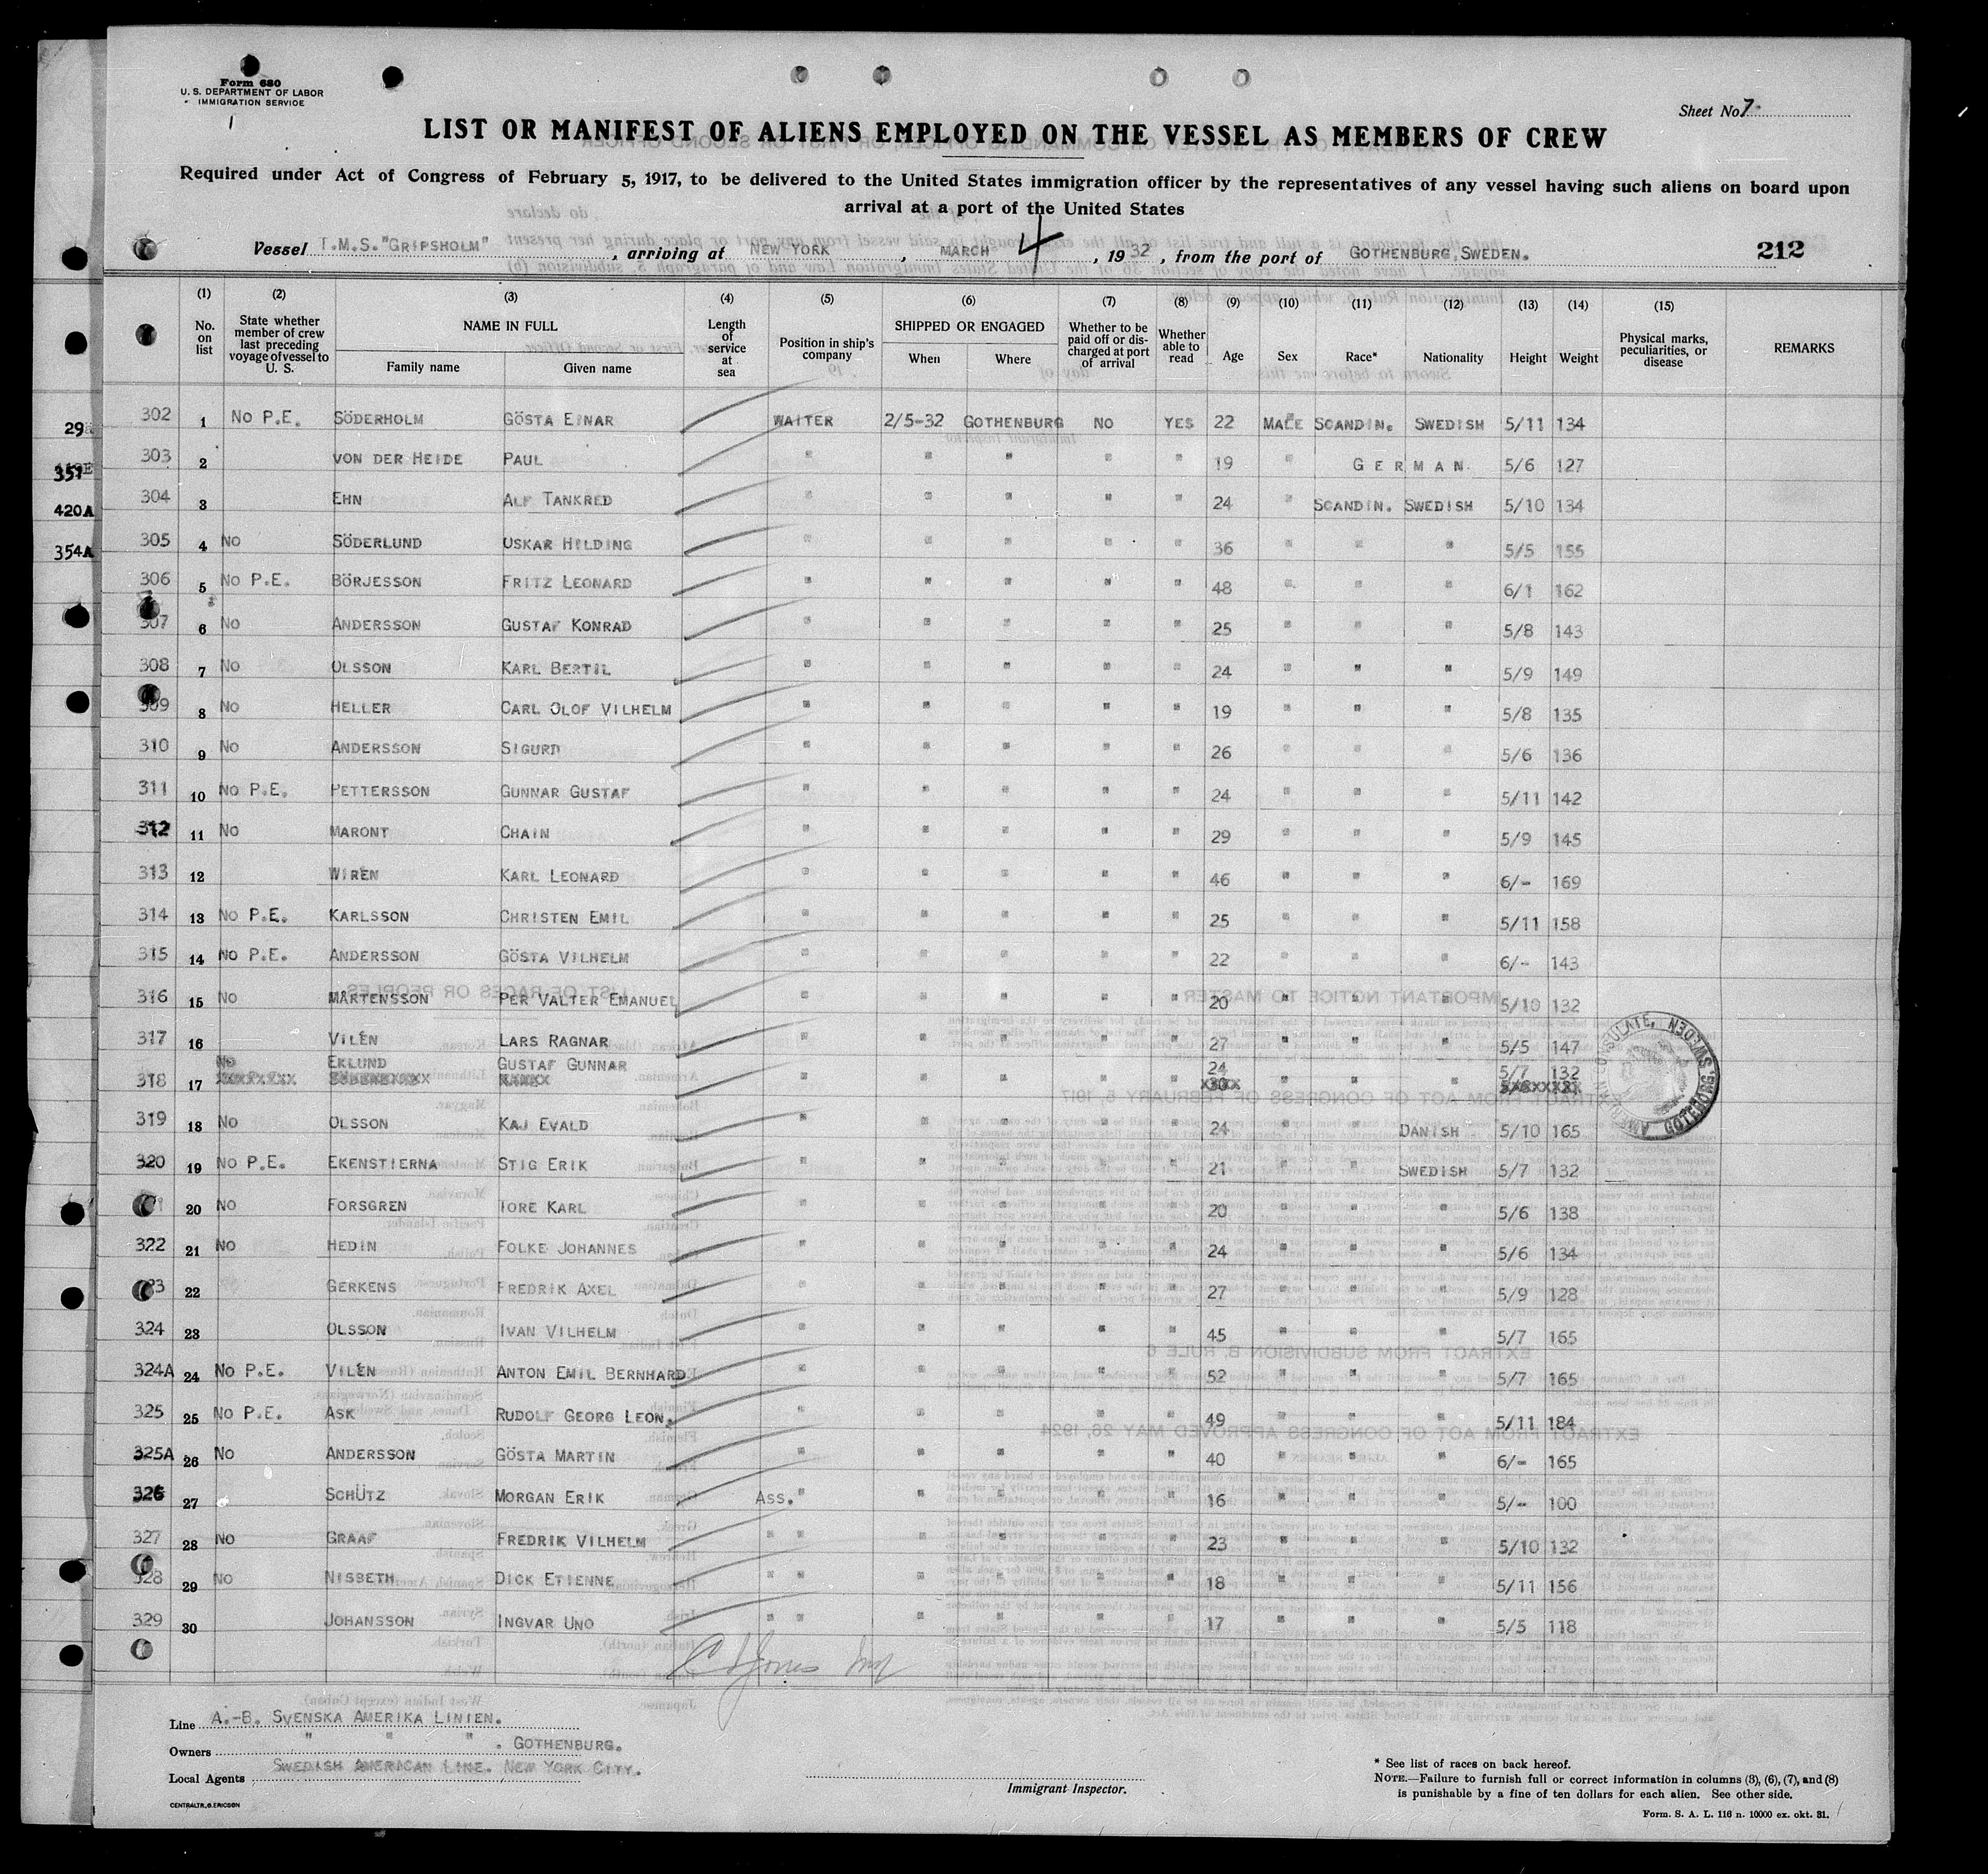 Form 680
U. S. DEPARTMENT OF LABOR
IMMIGRATION SERVICE
1
Sheet No. 7
LIST OR MANIFEST OF ALIENS EMPLOYED ON THE VESSEL AS MEMBERS OF CREW
Required under Act of Congress of February 5, 1917, to be delivered to the United States immigration officer by the representatives of any vessel having such aliens on board upon
arrival at a port of the United States
Vessel T.M.S. "GRIPSHOLM", arriving at NEW YORK, MARCH 4, 1932, from the port of GOTHENBURG, SWEDEN. 212
(1) (2) (3) (4) (5) (6) (7) (8) (9) (10) (11) (12) (13) (14) (15)
No. on list State whether member of crew last preceding voyage of vessel to U. S. NAME IN FULL Family name Given name Length of service at sea Position in ship's company SHIPPED OR ENGAGED When Where Whether to be paid off or discharged at port of arrival Whether able to read Age Sex Race* Nationality Height Weight Physical marks, peculiarities, or disease REMARKS
302 1 No P.E. SÖDERHOLM GÖSTA EINAR WAITER 2/5-32 GOTHENBURG NO YES 22 MALE SCANDIN. SWEDISH 5/11 134
303 2 VON DER HEIDE PAUL " " " " " 19 " GERMAN 5/6 127
304 3 EHN ALF TANKRED " " " " " 24 " SCANDIN. SWEDISH 5/10 134
420A
305 4 No SÖDERLUND OSKAR HILDING " " " " " 36 " " " 5/5 155
354A
306 5 No P.E. BÖRJESSON FRITZ LEONARD " " " " " 48 " " " 6/1 162
307 6 No ANDERSSON GUSTAF KONRAD " " " " " 25 " " " 5/8 143
308 7 No OLSSON KARL BERTIL " " " " " 24 " " " 5/9 149
309 8 No HELLER CARL OLOF VILHELM " " " " " 19 " " " 5/8 135
310 9 No ANDERSSON SIGURD " " " " " 26 " " " 5/6 136
311 10 No P.E. PETTERSSON GUNNAR GUSTAF " " " " " 24 " " " 5/11 142
312 11 No MARONT CHAIN " " " " " 29 " " " 5/9 145
313 12 WIREN KARL LEONARD " " " " " 46 " " " 6/- 169
314 13 No P.E. KARLSSON CHRISTEN EMIL " " " " " 25 " " " 5/11 158
315 14 No P.E. ANDERSSON GÖSTA VILHELM " " " " " 22 " " " 6/- 143
316 15 No MÅRTENSSON PER VALTER EMANUEL " " " " " 20 " " " 5/10 132
317 16 VILÉN LARS RAGNAR " " " " " 27 " " " 5/5 147
No EKLUND GUSTAF GUNNAR 24 5/7 132
318 17 " " " " " " " "
319 18 No OLSSON KAJ EVALD " " " " " 24 " " DANISH 5/10 165
AMERICAN CONSULATE, GOTEBORG, SWEDEN
320 19 No P.E. EKENSTIERNA STIG ERIK " " " " " 21 " " SWEDISH 5/7 132
20 No FORSGREN TORE KARL " " " " " 20 " " " 5/6 138
322 21 No HEDIN FOLKE JOHANNES " " " " " 24 " " " 5/6 134
22 GERKENS FREDRIK AXEL " " " " " 27 " " " 5/9 128
324 23 OLSSON IVAN VILHELM " " " " " 45 " " " 5/7 165
324A 24 No P.E. VILÉN ANTON EMIL BERNHARD " " " " " 52 " " " 5/7 165
325 25 No P.E. ASK RUDOLF GEORG LEON. " " " " " 49 " " " 5/11 184
325A 26 No ANDERSSON GÖSTA MARTIN " " " " " 40 " " " 6/- 165
326 27 SCHÜTZ MORGAN ERIK ASS. " " " " " 16 " " " 5/- 100
327 28 No GRAAF FREDRIK VILHELM " " " " " " 23 " " " 5/10 132
328 29 No NISBETH DICK ETIENNE " " " " " " 18 " " " 5/11 156
329 30 JOHANSSON INGVAR UNO " " " " " " 17 " " " 5/5 118
Line A.-B. SVENSKA AMERIKA LINIEN.
Owners " " " . GOTHENBURG.
Local Agents SWEDISH AMERICAN LINE. NEW YORK CITY.
Immigrant Inspector.
CENTRALTR. G. ERICSON
* See list of races on back hereof.
NOTE.—Failure to furnish full or correct information in columns (3), (6), (7), and (8)
is punishable by a fine of ten dollars for each alien. See other side.
Form. S. A. L. 116 n. 10000 ex. okt. 31.